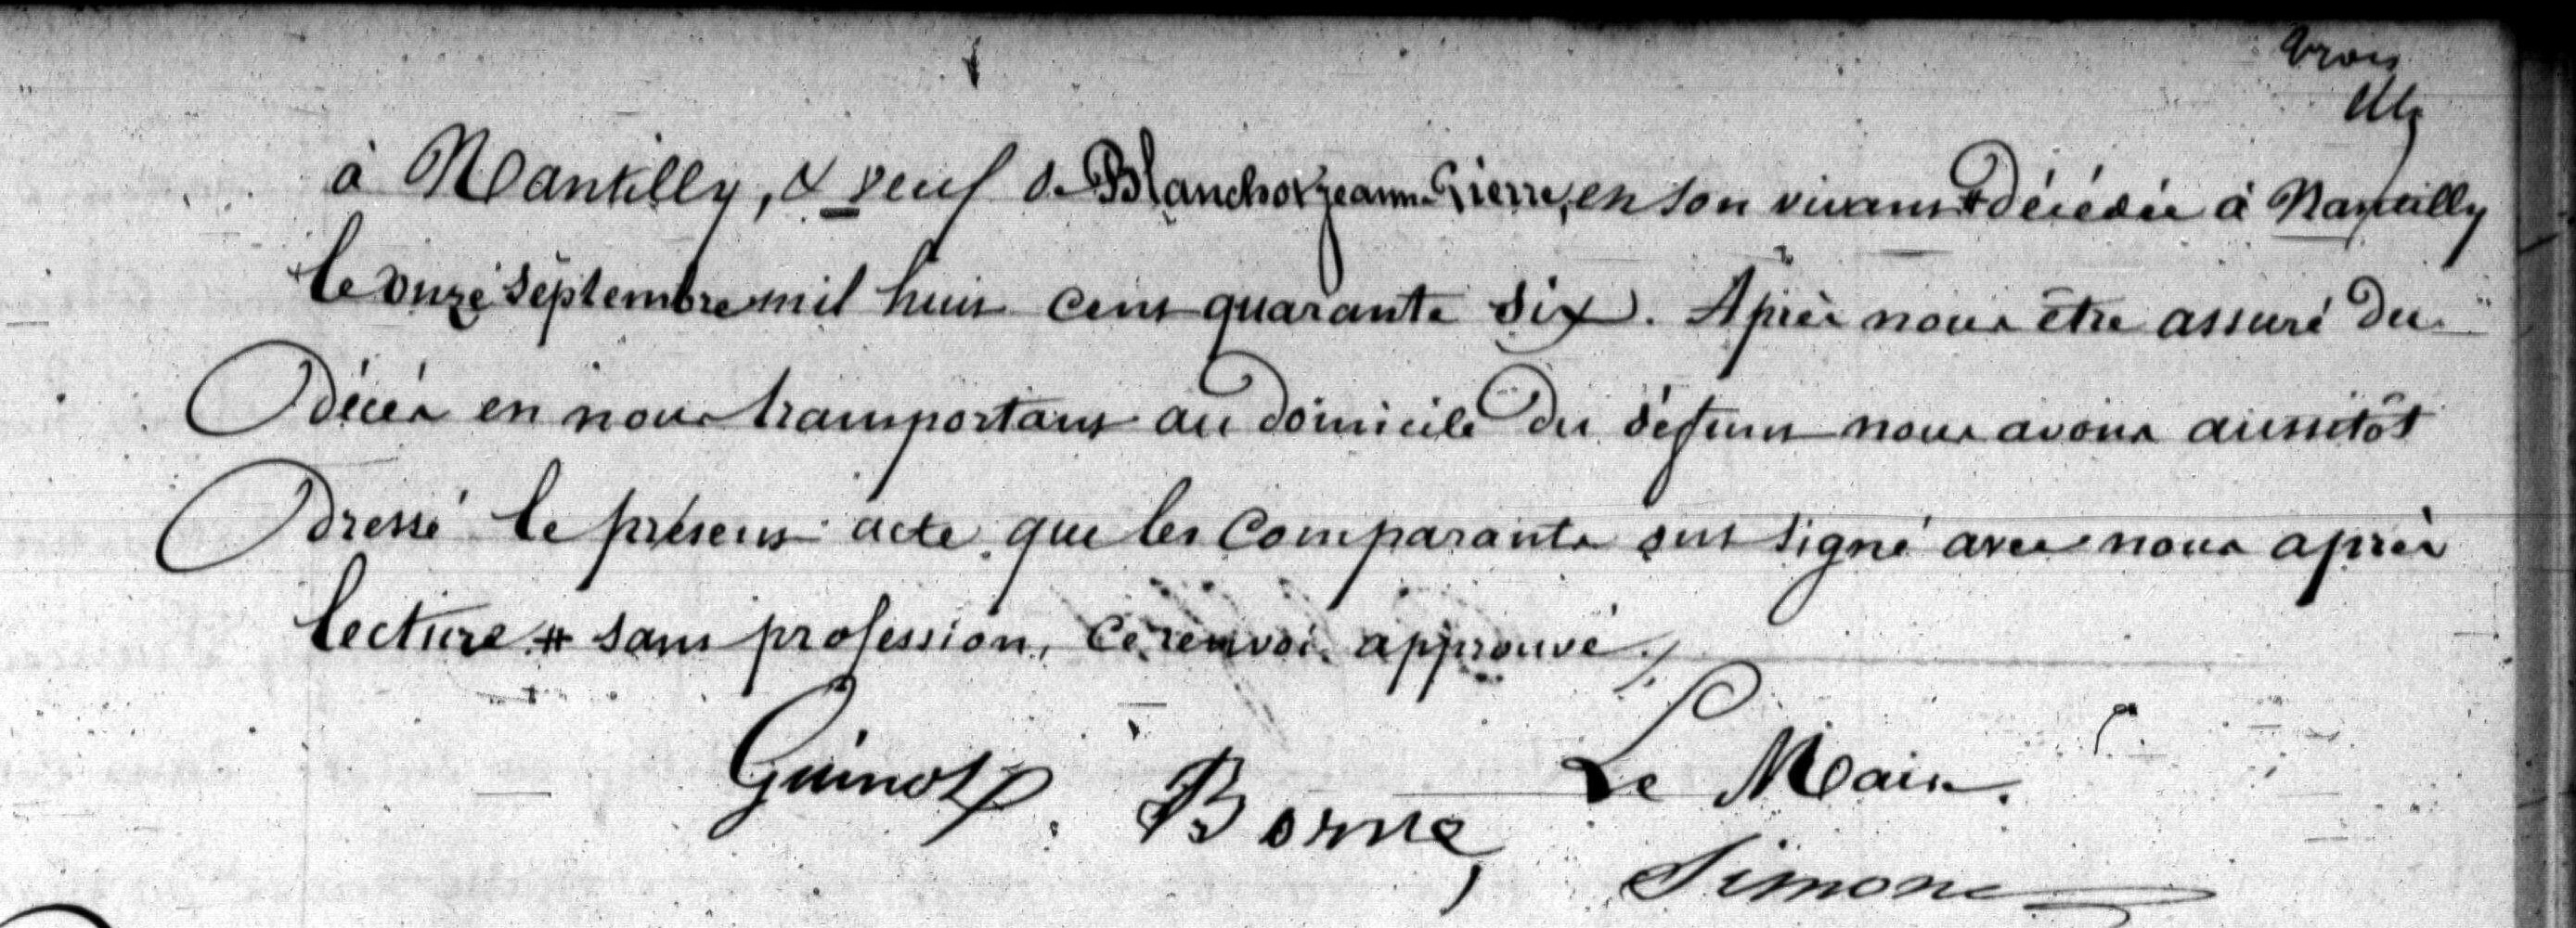 trois
à Mantilly, & veuf de Blanchot Jeanne Pierre, en son vivant # décédée à Mantilly
le onze septembre mil huit cent quarante six. Après nous être assuré du
décès en nous transportant au domicile du défunt nous avons aussitôt
dressé le présent acte que les comparants ont signé avec nous après
lecture. # sans profession, ce renvoi approuvé.
Guinot. Borne, Le Maire.
Simone